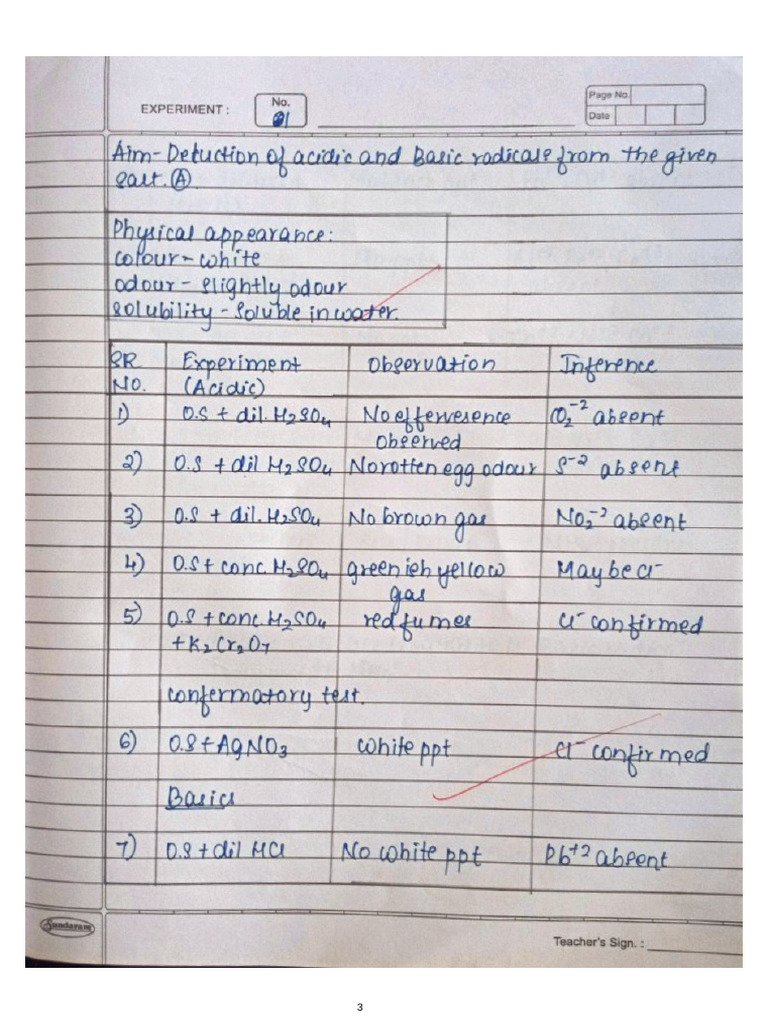 EXPERIMENT :
No.
01
Page No.
Date
Aim- Detuction of acidic and Basic radicals from the given
salt. Ⓐ
Physical appearance:
colour - white
odour - slightly odour
solubility - soluble in water.
SR NO. Experiment (Acidic) Observation Inference
1) O.S + dil. H₂SO₄ No effervesence observed CO₂⁻² absent
2) O.S + dil H₂SO₄ No rotten egg odour S⁻² absent
3) O.S + dil. H₂SO₄ No brown gas NO₂⁻² absent
4) O.S + conc. H₂SO₄ greenish yellow gas Maybe Cl⁻
5) O.S + conc. H₂SO₄ + K₂Cr₂O₇ red fumes Cl⁻ confirmed
confermatory test.
6) O.S + AgNO₃ white ppt Cl⁻ confirmed
Basics
7) O.S + dil HCl No white ppt Pb⁺² absent
Sundaram
Teacher's Sign. :
3